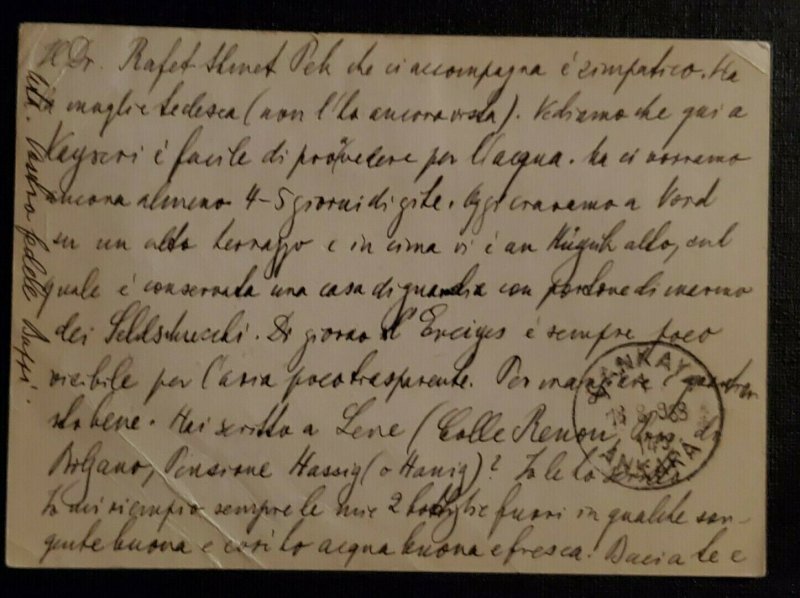 Il Dr. Rafet Ahmet Pek che ci accompagna è simpatico. Ha
la moglie tedesca (non l'ho ancora vista). Vediamo che qui a
Kayseri è facile di provvedere per l'acqua. Ma ci vorranno
ancora almeno 4-5 giorni di gite. Oggi eravamo a Nord
su un alto terrazzo e in cima vi è un Hüyük alto, sul
quale è conservata una casa di guardia con portone di marmo
dei Seldschucchi. Di giorno l'Erciyes è sempre poco
visibile per l'aria poco trasparente. Per mangiare è
sto bene. Hai scritto a Lene (Colle Renon, di
Bolzano, Pensione Hassig (o Hanig)? Io le ho
Io mi riempio sempre le mie 2 bottiglie fuori in qualche sor-
gente buona e così ho acqua buona e fresca. Bacia te e
fedele
ÇANKAYA
ANKARA